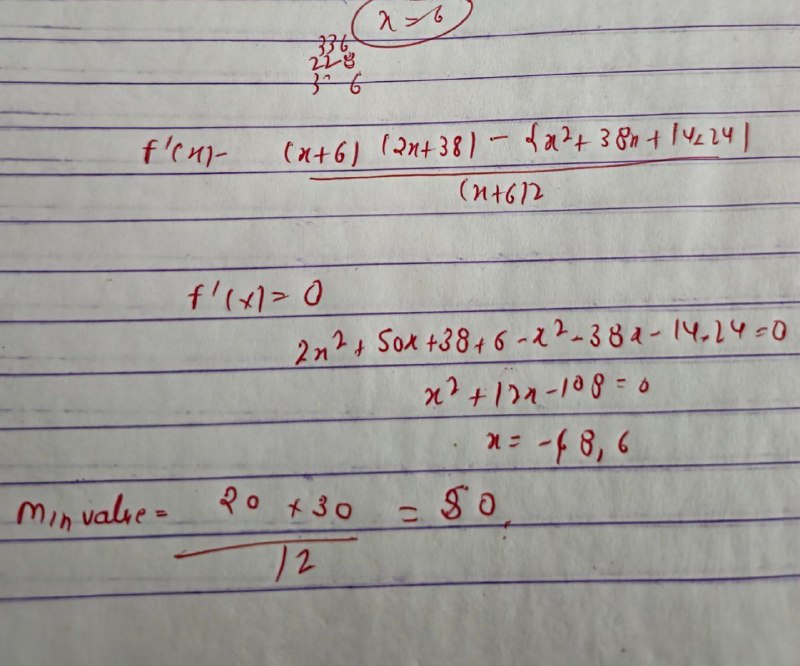 x = 6
336
228
3 6
f'(x) - (x+6) (2x+38) - {x²+38x+14×24}
(x+6)2
f'(x) = 0
2x² + 50x + 38 + 6 - x² - 38x - 14.24 = 0
x² + 12x - 108 = 0
x = -18, 6
Min value = 20 × 30 = 50
12